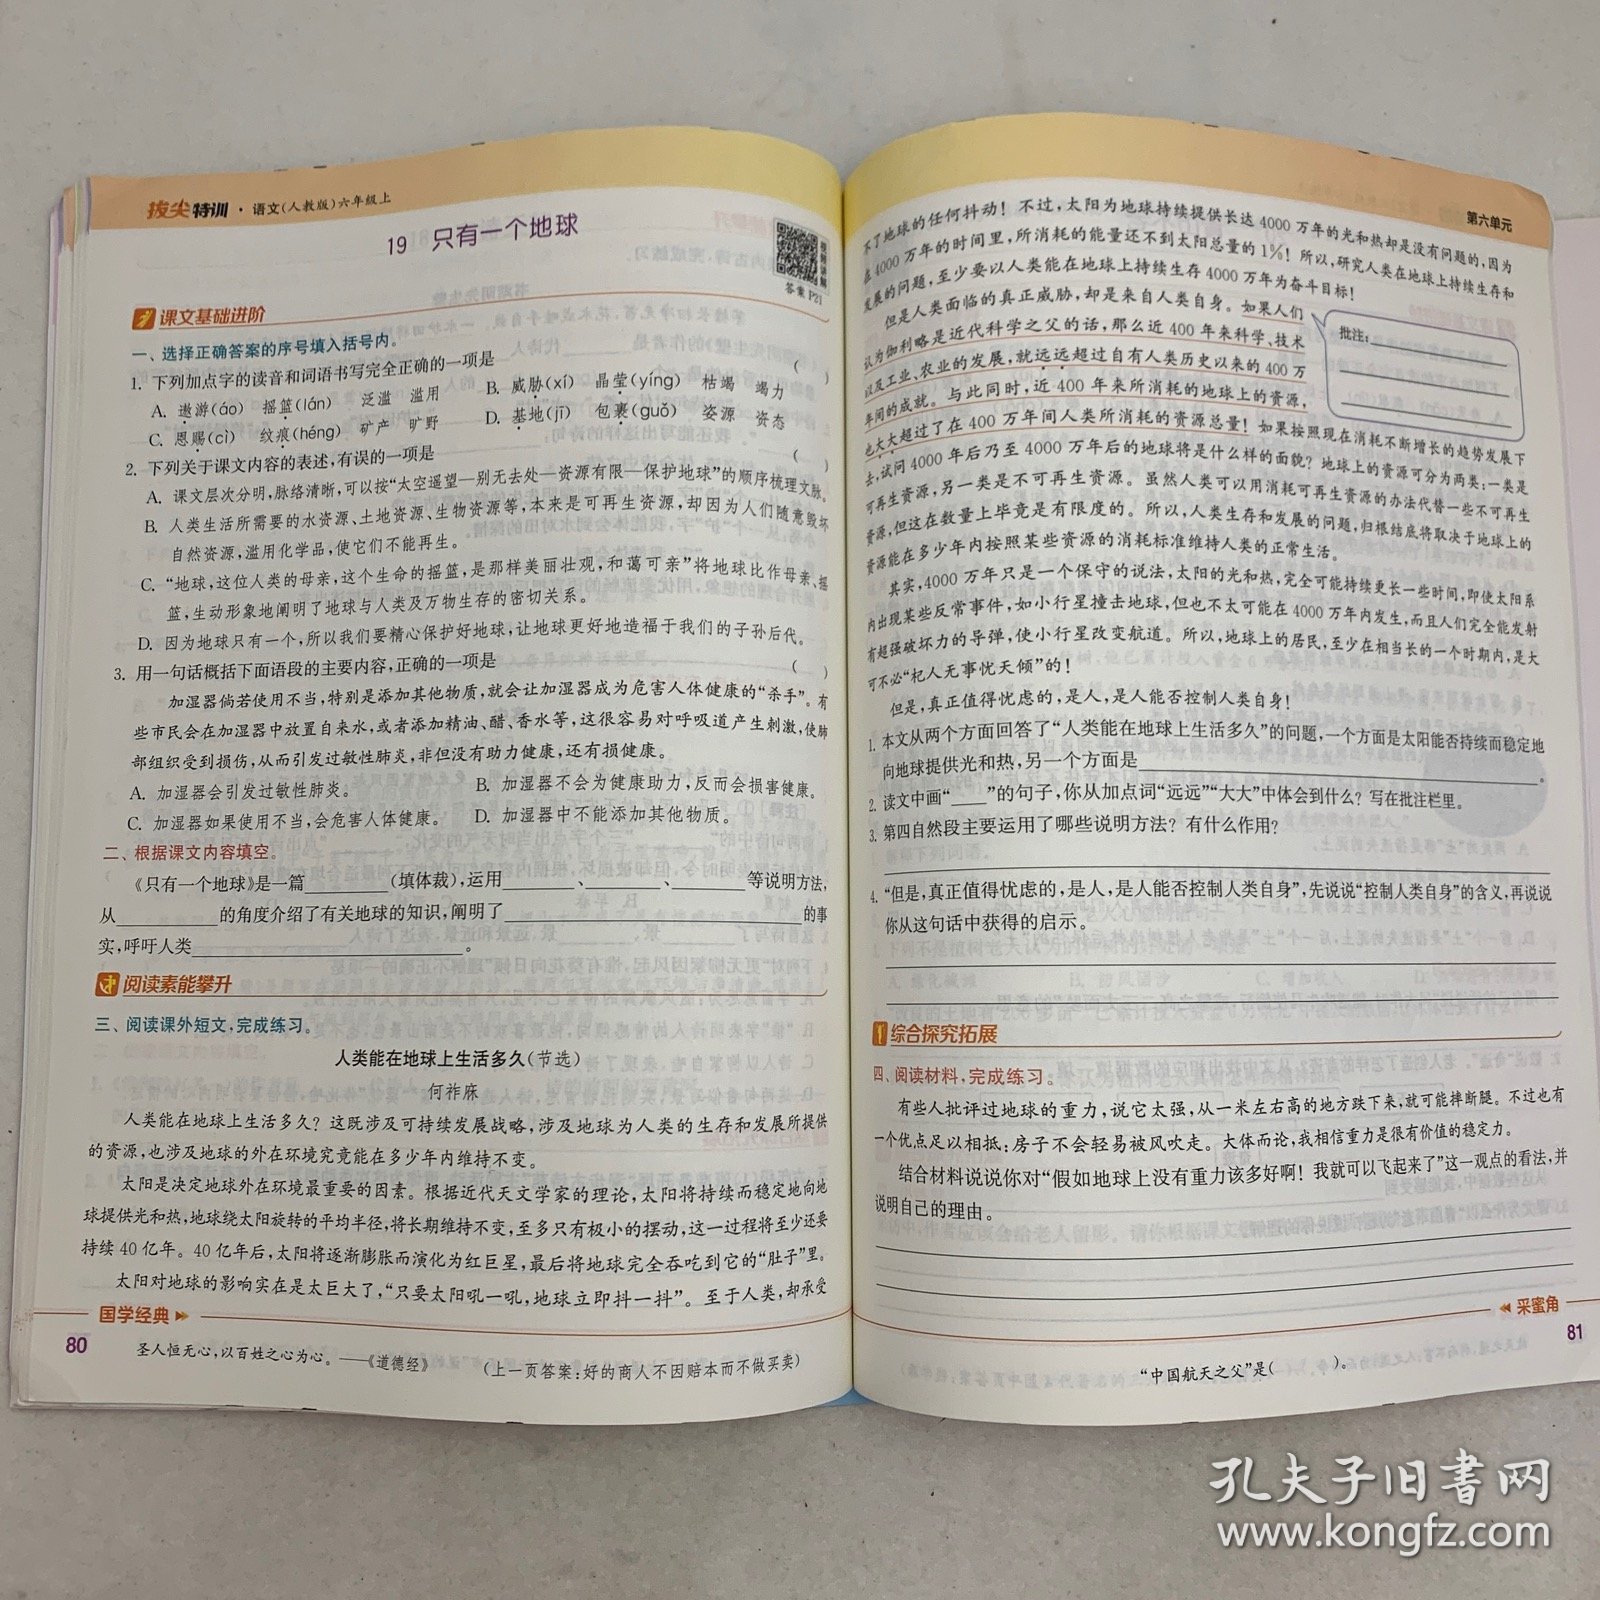 拔尖特训·语文(人教版)六年级上
19 只有一个地球
答案P21
课文基础进阶
一、选择正确答案的序号填入括号内。
1. 下列加点字的读音和词语书写完全正确的一项是 ( )
A. 遨游(áo) 摇篮(lán) 泛滥 滥用 B. 威胁(xí) 晶莹(yíng) 枯竭 竭力
C. 恩赐(cì) 纹痕(héng) 矿产 旷野 D. 基地(jī) 包裹(guǒ) 姿源 资态
2. 下列关于课文内容的表述,有误的一项是 ( )
A. 课文层次分明,脉络清晰,可以按“太空遥望—别无去处—资源有限—保护地球”的顺序梳理文脉。
B. 人类生活所需要的水资源、土地资源、生物资源等,本来是可再生资源,却因为人们随意毁坏
自然资源,滥用化学品,使它们不能再生。
C. “地球,这位人类的母亲,这个生命的摇篮,是那样美丽壮观,和蔼可亲”将地球比作母亲、摇
篮,生动形象地阐明了地球与人类及万物生存的密切关系。
D. 因为地球只有一个,所以我们要精心保护好地球,让地球更好地造福于我们的子孙后代。
3. 用一句话概括下面语段的主要内容,正确的一项是 ( )
加湿器倘若使用不当,特别是添加其他物质,就会让加湿器成为危害人体健康的“杀手”。有
些市民会在加湿器中放置自来水,或者添加精油、醋、香水等,这很容易对呼吸道产生刺激,使肺
部组织受到损伤,从而引发过敏性肺炎,非但没有助力健康,还有损健康。
A. 加湿器会引发过敏性肺炎。 B. 加湿器不会为健康助力,反而会损害健康。
C. 加湿器如果使用不当,会危害人体健康。 D. 加湿器中不能添加其他物质。
二、根据课文内容填空。
《只有一个地球》是一篇________(填体裁),运用________、________、________等说明方法,
从________的角度介绍了有关地球的知识,阐明了________的事
实,呼吁人类________。
阅读素能攀升
三、阅读课外短文,完成练习。
人类能在地球上生活多久(节选)
何祚庥
人类能在地球上生活多久?这既涉及可持续发展战略,涉及地球为人类的生存和发展所提供
的资源,也涉及地球的外在环境究竟能在多少年内维持不变。
太阳是决定地球外在环境最重要的因素。根据近代天文学家的理论,太阳将持续而稳定地向地
球提供光和热,地球绕太阳旋转的平均半径,将长期维持不变,至多只有极小的摆动,这一过程将至少还要
持续40亿年。40亿年后,太阳将逐渐膨胀而演化为红巨星,最后将地球完全吞吃到它的“肚子”里。
太阳对地球的影响实在是太巨大了,“只要太阳吼一吼,地球立即抖一抖”。至于人类,却承受
国学经典
80
圣人恒无心,以百姓之心为心。——《道德经》 (上一页答案:好的商人不因赔本而不做买卖)
第六单元
不了地球的任何抖动!不过,太阳为地球持续提供长达4000万年的光和热却是没有问题的,因为
在4000万年的时间里,所消耗的能量还不到太阳总量的1%!所以,研究人类在地球上持续生存和
发展的问题,至少要以人类能在地球上持续生存4000万年为奋斗目标!
但是人类面临的真正威胁,却是来自人类自身。如果人们
认为伽利略是近代科学之父的话,那么近400年来科学、技术
以及工业、农业的发展,就远远超过自有人类历史以来的400万
年间的成就。与此同时,近400年来所消耗的地球上的资源,
也大大超过了在400万年间人类所消耗的资源总量!如果按照现在消耗不断增长的趋势发展下
批注:
去,试问4000年后乃至4000万年后的地球将是什么样的面貌?地球上的资源可分为两类:一类是
可再生资源,另一类是不可再生资源。虽然人类可以用消耗可再生资源的办法代替一些不可再生
资源,但这在数量上毕竟是有限度的。所以,人类生存和发展的问题,归根结底将取决于地球上的
资源能在多少年内按照某些资源的消耗标准维持人类的正常生活。
其实,4000万年只是一个保守的说法,太阳的光和热,完全可能持续更长一些时间,即使太阳系
内出现某些反常事件,如小行星撞击地球,但也不太可能在4000万年内发生,而且人们完全能发射
有超强破坏力的导弹,使小行星改变航道。所以,地球上的居民,至少在相当长的一个时期内,是大
可不必“杞人无事忧天倾”的!
但是,真正值得忧虑的,是人,是人能否控制人类自身!
1. 本文从两个方面回答了“人类能在地球上生活多久”的问题,一个方面是太阳能否持续而稳定地
向地球提供光和热,另一个方面是________。
2. 读文中画“____”的句子,你从加点词“远远”“大大”中体会到什么?写在批注栏里。
3. 第四自然段主要运用了哪些说明方法?有什么作用?
4. “但是,真正值得忧虑的,是人,是人能否控制人类自身”,先说说“控制人类自身”的含义,再说说
你从这句话中获得的启示。
综合探究拓展
四、阅读材料,完成练习。
有些人批评过地球的重力,说它太强,从一米左右高的地方跌下来,就可能摔断腿。不过也有
一个优点足以相抵:房子不会轻易被风吹走。大体而论,我相信重力是很有价值的稳定力。
结合材料说说你对“假如地球上没有重力该多好啊!我就可以飞起来了”这一观点的看法,并
说明自己的理由。
采蜜角
81
“中国航天之父”是( )。
孔夫子旧书网
www.kongfz.com